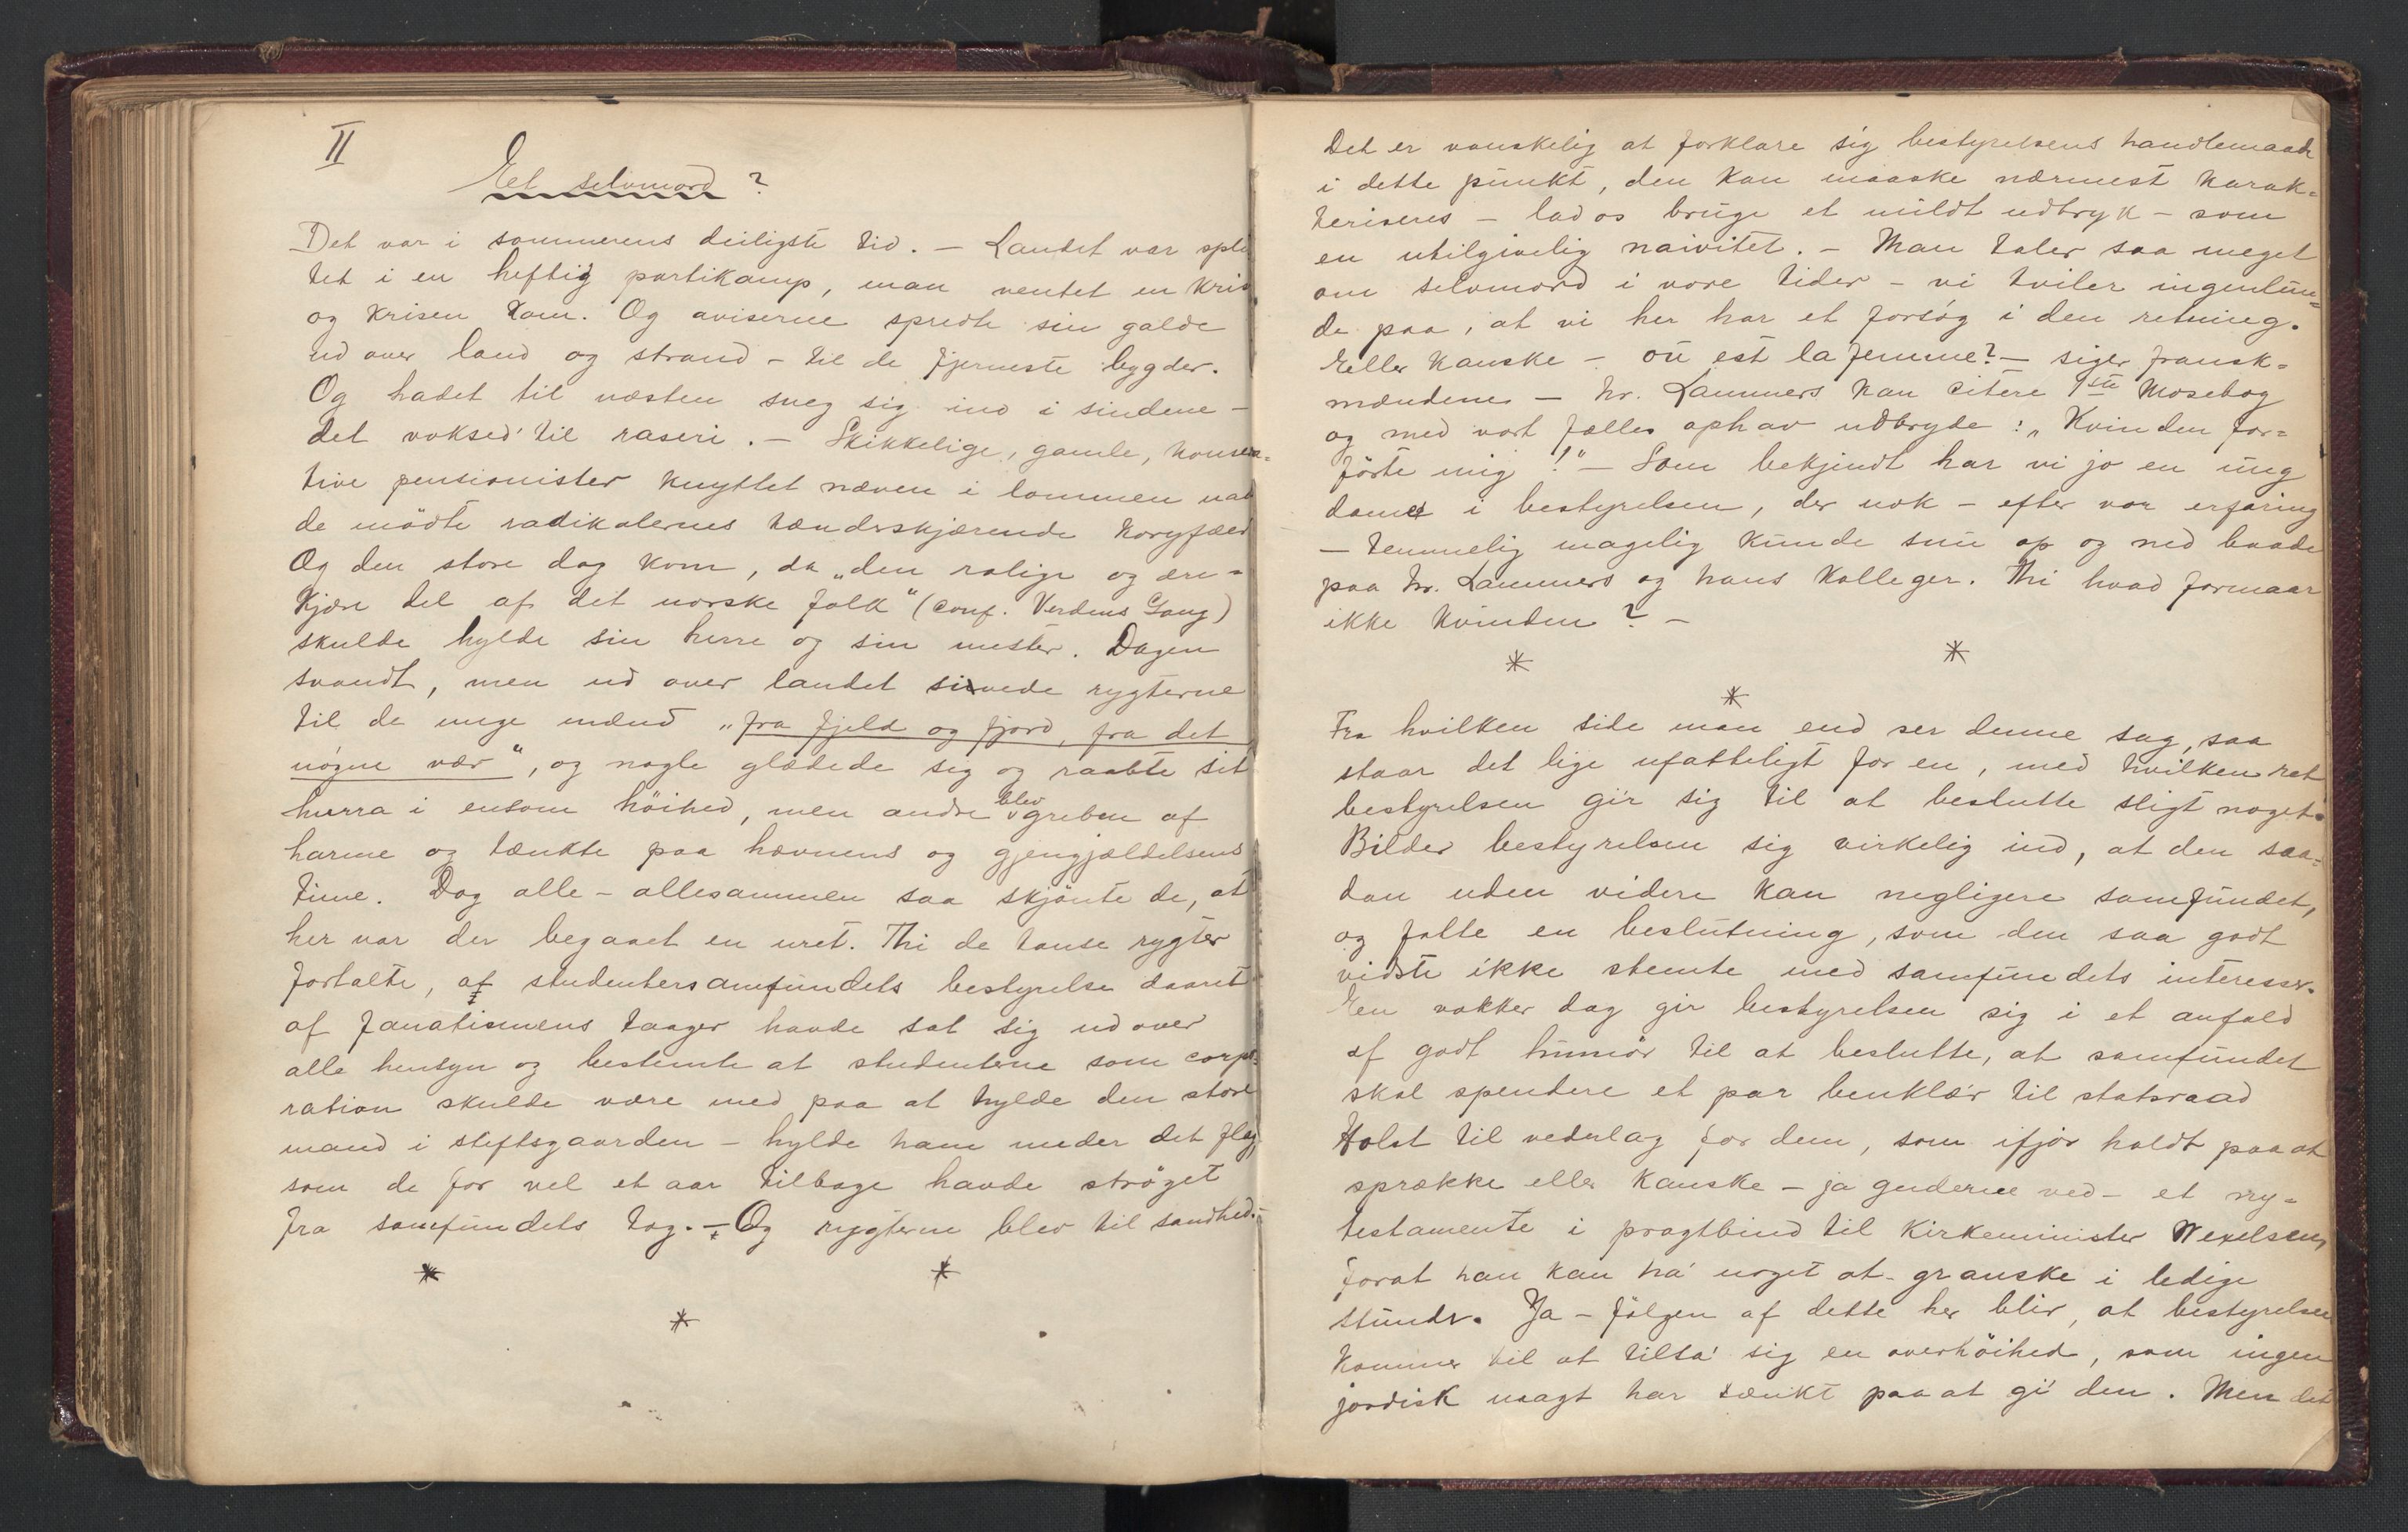 II
Et selvmord?
Det var i sommerens deiligste tid. – Landet var split
tet i en heftig partikamp, man ventet en kris
og krisen kom. Og aviserne spredte sin galde
ud over land og strand – til de fjerneste bygder.
Og hadet til næsten sneg sig ind i sindene –
det voksed' til raseri. – Skikkelige, gamle, konserva=
tive pensionister knyttet næven i lommen naar
de mödte radikalernes tændsskjærende koryfæer
Og den store dag kom, da „den rolige og ære=
kjære del af det norske folk" (conf. Verdens Gang)
skulde hylde sin herre og sin mester. Dagen
svandt, men ud over landet sivede rygterne
til de unge mænd „fra fjeld og fjord, fra det
nögne vær", og nogle glædede sig og raabte sit
hurra i ensom höihed, men andre blev greben af
harme og tænkte paa hævnens og gjengjældelsens
time. Dog alle – allesammen saa skjönte de, at
her var der begaaet en uret. Thi de tause rygter
fortalte, at studentersamfundets bestyrelse daaret
af fanatismens taager havde sat sig ud over
alle hensyn og bestemte at studenterne som corpo=
ration skulde være med paa at hylde den store
mand i stiftsgaarden – hylde ham under det flag,
som de for vel et aar tilbage havde ströget
fra samfundets tag. – Og rygterne blev til sandhed. –
* *
*
Det er vanskelig at forklare sig bestyrelsens handlemaade
i dette punkt, den kan maaske nærmest karak=
teriseres – lad os bruge et mildt udtryk – som
en utilgivelig naivitet. – Man taler saa meget
om selvmord i vore tider – vi tviler ingenlun=
de paa, at vi her har et forsög i den retning.
Eller kanske – où est la femme? – siger fransk=
mændene – hr. Lammers kan citere 1ste Mosebog
og med vort fælles ophav udbryde: „Kvinden for=
förte mig!" – Som bekjendt har vi jo en ung
dame i bestyrelsen, der nok – efter vor erfaring
– temmelig magelig kunde snu op og ned baade
paa hr. Lammers og hans kolleger. Thi hvad formaar
ikke kvinden? –
* *
*
Fra hvilken side man end ser denne sag, saa
staar det lige ufatteligt for en, med hvilken ret
bestyrelsen gir sig til at beslutte sligt noget.
Bilder bestyrelsen sig virkelig ind, at den saa=
dan uden videre kan negligere samfundet,
og fatte en beslutning, som den saa godt
vidste ikke stemte med samfundets interesser.
Een vakker dag gir bestyrelsen sig i et anfald
af godt humör til at beslutte, at samfundet
skal spendere et par benklær til statsraad
Holst til vederlag for dem, som ifjor holdt paa at
sprække eller kanske – ja guderne ved – et ny=
testamente i pragtbind til kirkeminister Wexelsen,
forat han kan ha' noget at granske i ledige
stunder. Ja – fölgen af dette her blir, at bestyrelsen
kommer til at tilta' sig en overhöihed, som ingen
jordisk magt har tænkt paa at gi' den. Men det